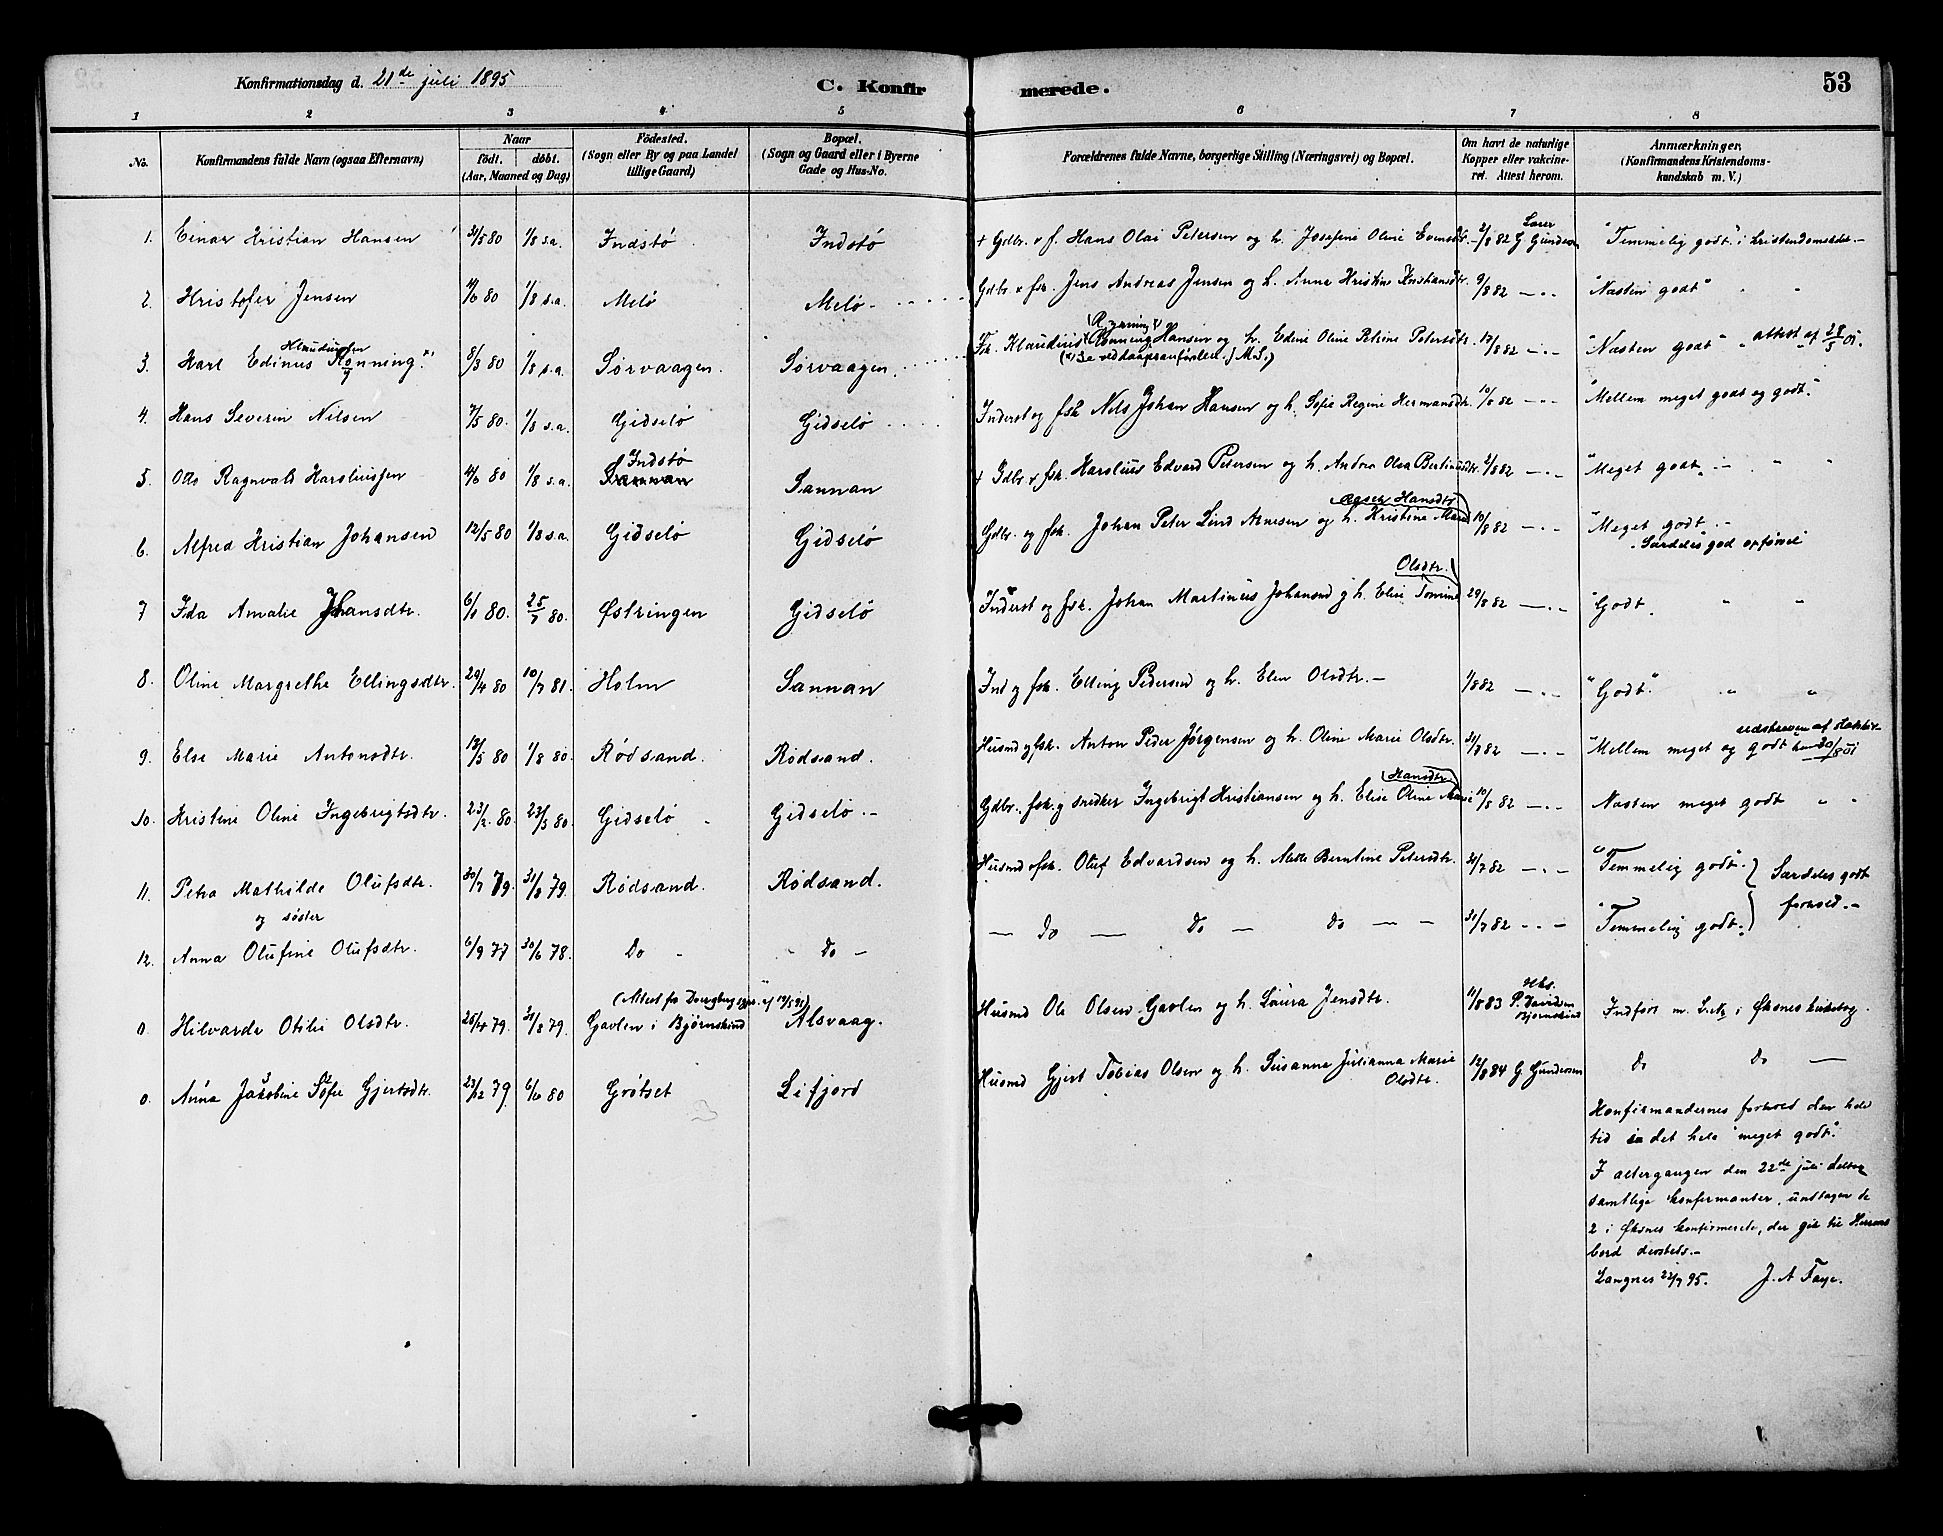 Konfirmationsdag d. 21de juli 1895 C. Konfirmerede. 53
1 2 3 4 5 6 7 8
No. Konfirmandens fulde Navn (ogsaa Efternavn) Naar födt. döbt. (Aar, Maaned og Dag) Födested. (Sogn eller By og paa Landet tillige Gaard) Bopæl. (Sogn og Gaard eller i Byerne Gade og Hus-No. Forældrenes fulde Navne, borgerlige Stilling (Næringsvei) og Bopæl. Om havt de naturlige Kopper eller vakcineret. Attest herom. Anmærkninger, (Konfirmandens Kristendomskundskab m. V.)
1. Einar Kristian Hansen 31/5 80 1/8 s.a. Indstø Indstø + Gdbr. & f. Hans Olai Petersen og h. Josefine Oline 2/8 82 G Gundersen "Temmelig godt" i kristendomskdsk. –
2. Kristofer Jensen 14/6 80 1/8 s.a. Melø Melø Gdbr & fsk. Jens Andreas Jensen og h. Anna Kristine Kristiansdtr. 9/8 82 – " – "Næsten godt" " "
3. Karl Edinus Klaudiussen Rønning x) 8/3 80 1/8 s.a. Sørvaagen. Sørvaagen Fsk. Klaudius Rønning Hansen og h. Edine Oline Petrine Petersdtr. 17/8 82 – " – "Næsten godt" " attest af 28/5 01.
(x) Se ved daapsanførslen. J M.S.)
4. Hans Severin Nilsen 7/5 80 1/8 s.a. Gidselø Gidselø Inderst og fsk Nels Johan Hansen og h. Sofie Regine Hermansdtr. 10/8 82 – " – "Mellem meget godt og godt."
5. Odo Ragnvald Karoliussen 4/6 80 1/8 s.a. Indstø Sannan Sannan + Gdbr & fsk. Karolius Edvard Petersen og h. Andrea Olea Bertinusdtr. 2/8 82 – " – "Meget godt" – " "
6. Alfred Kristian Johansen 12/5 80 1/8 s.a. Gidselø Gidselø Gdbr. og fsk. Johan Peter Lind Arnesen og h. Kristine Marie Hansdtr 10/8 82 – " – "Meget godt. –
Særdeles god opførsel
7 Ida Amalie Johansdtr. 6/1 80. 25/7 80. Østringen Gidselø Inderst og fsk. Johan Martinus Johansen og h. Elen Tomine Olsdtr. 29/8 82 – " – "Godt. " "
8. Oline Margrethe Ellingsdtr. 29/4 80 10/7 81. Holm Sannan Ind og fsk. Elling Pedersen og h. Elen Olsdtr. – 1/8 82 – " – "Godt". " "
9. Else Marie Antonsdtr. 13/5 80 1/8 80. Rødsand. Rødsand. Husmd og fsk. Anton Peder Jørgensen og h. Oline Marie Olsdtr. 31/7 82 – " – "Mellem meget og godt
10. Kristine Oline Ingebrigtsdtr. 23/2. 80. 23/5 80. Gidselø Gidselø. – Gdbr., fsk. og snedker Ingebrigt Kristiansen og h. Elise Oline Marie Hansdtr 10/8 82 – " – Næsten meget godt " "
11. Petra Mathilde Olufsdtr. 30/7 79. 31/8 79. Rødsand. Rødsand. Husmd & fsk. Oluf Edvardsen og h. Mette Berntine Petersdtr. 31/7 82 – " – "Temmelig godt". Særdeles godt forhold. –
og søster
12. Anna Olufine Olufsdtr. 6/9 77 30/6 78. Do Do – – Do – Do – Do – – 31/7 82 – " – "Temmelig godt.
0. Hilvarda Otilie Olsdtr. 26/4 79. 31/8 79. Gavlen i Bjørnskind Alsvaag. Husmd Ole Olsen Gavlen og h. Laura Jensdtr. 11/8 83 P. Davidsen Bjørnskind Indført m. i Øksnes kirkebog.
0. Anna Jakobine Sofie Gjertsdtr. 23/12 79 6/6 80 Grøtset Lifjord Husmd Gjert Tobias Olsen og h. Susanna Julianna Marie Olsdtr. 12/8 84 G Gundersen Do Do –
Konfirmandernes forhold den hele
tid i det hele "meget godt".
I altergangen den 22de juli deltog
samtlige konfirmanter, undtagen de
2 i Øksnes konfirmerede, der gik til Herrens
bord dersteds. –
Langnes 22/7 95. J. A Faye.